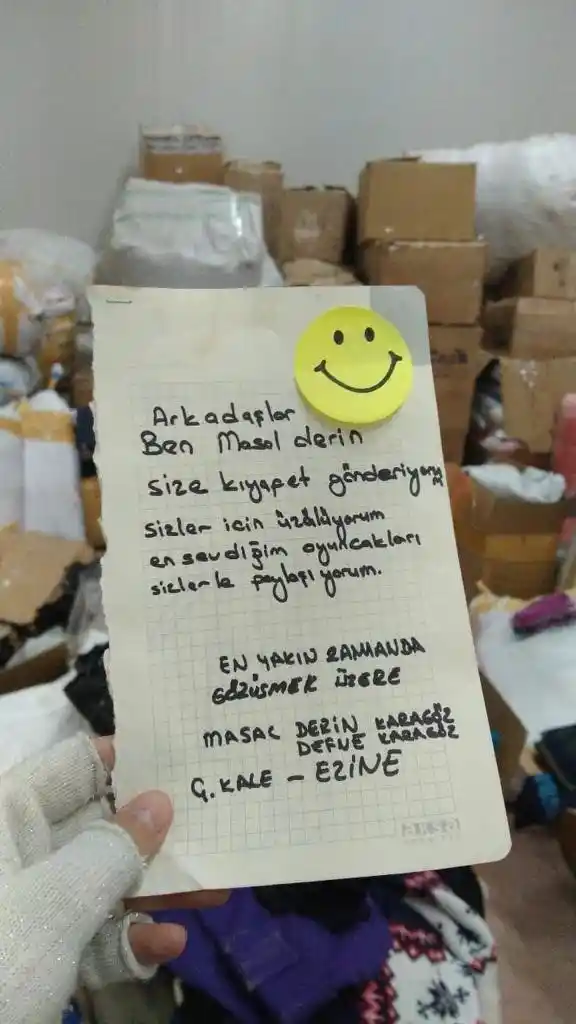 Arkadaşlar
Ben Masal derin
size kıyafet gönderiyorum
sizler icin üzülüyorum
en sevdiğim oyuncakları
sizlerle paylaşıyorum.
EN YAKIN ZAMANDA
GÖZÜŞMEK ÜZERE
MASAL DERİN KARAGÖZ
DEFNE KARAGÖZ
Ç.KALE - EZİNE